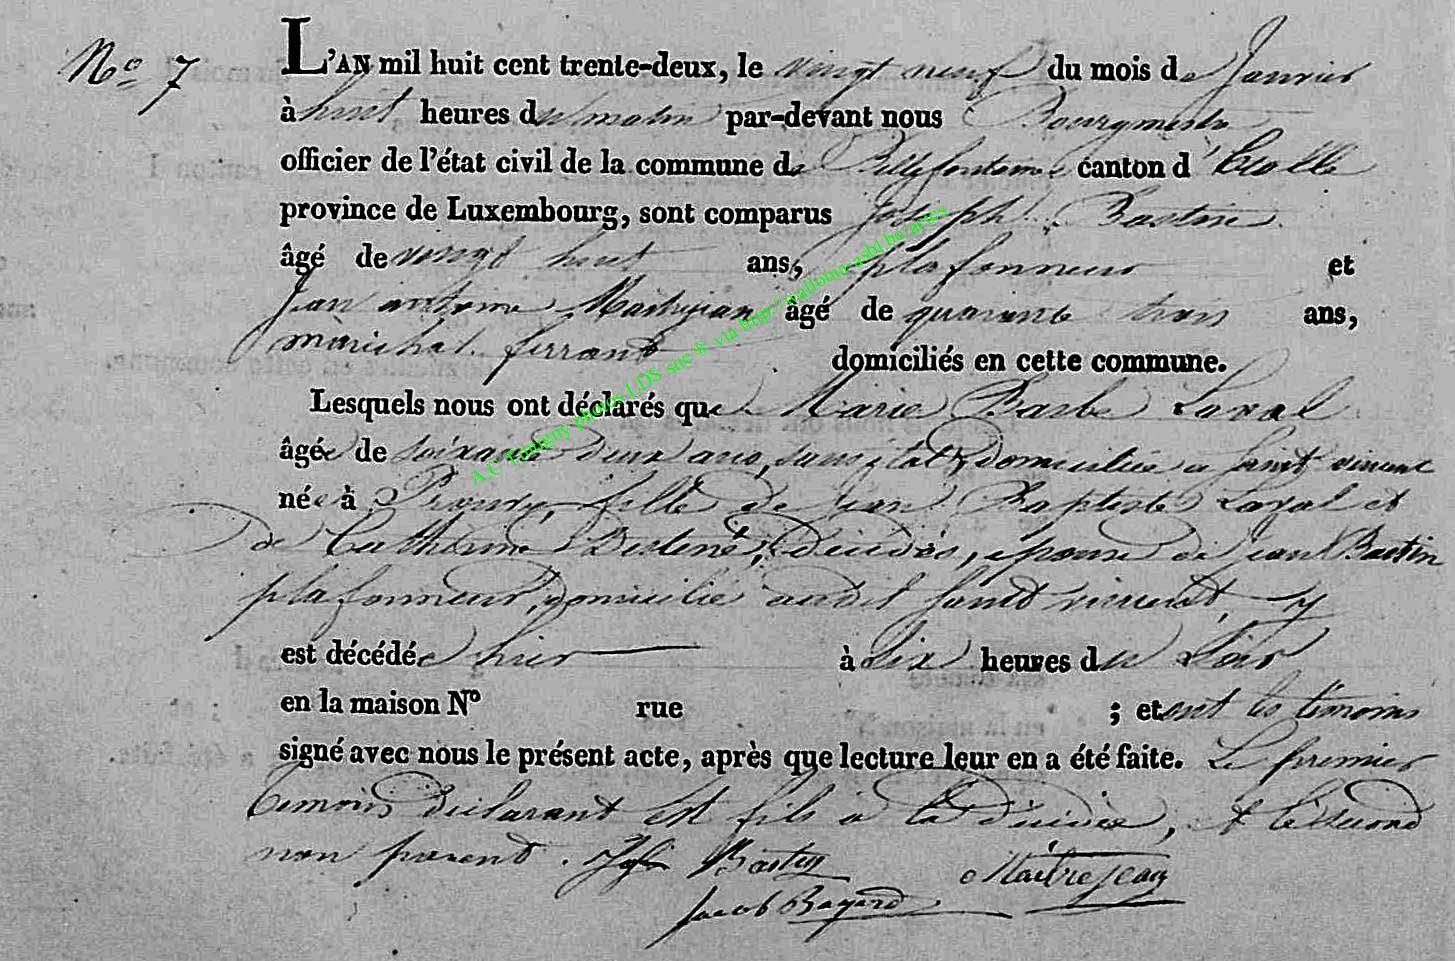 N° 7
L'AN mil huit cent trente-deux, le vingt neuf du mois de Janvier
à huit heures du matin par-devant nous Bourgmestre
officier de l'état civil de la commune de Bellefontaine canton d'Etalle
province de Luxembourg, sont comparus Joseph Bastin
âgé de vingt huit ans, plafonneur et
Jean antoine Maitrejean âgé de quarante trois ans,
maréchal ferrant domiciliés en cette commune.
Lesquels nous ont déclarés que Marie Barbe Laval
âgée de soixante deux ans, sans état, domiciliée a saint vincent
née à fille de jean Baptiste Laval et
de Catherine décédés, épouse de jean Bastin
plafonneur, domicilié audit saint vincent, y
est décédée hier à six heures du soir
en la maison N° rue ; et ont les témoins
signé avec nous le présent acte, après que lecture leur en a été faite. Le premier
temoin déclarant est fils a la décédée, et le second
non parent. Jph Bastin Maitrejean
Jacob Bayard
A.C Tintigny photos LDS site ® via http://wallonia-asbl.be/actes